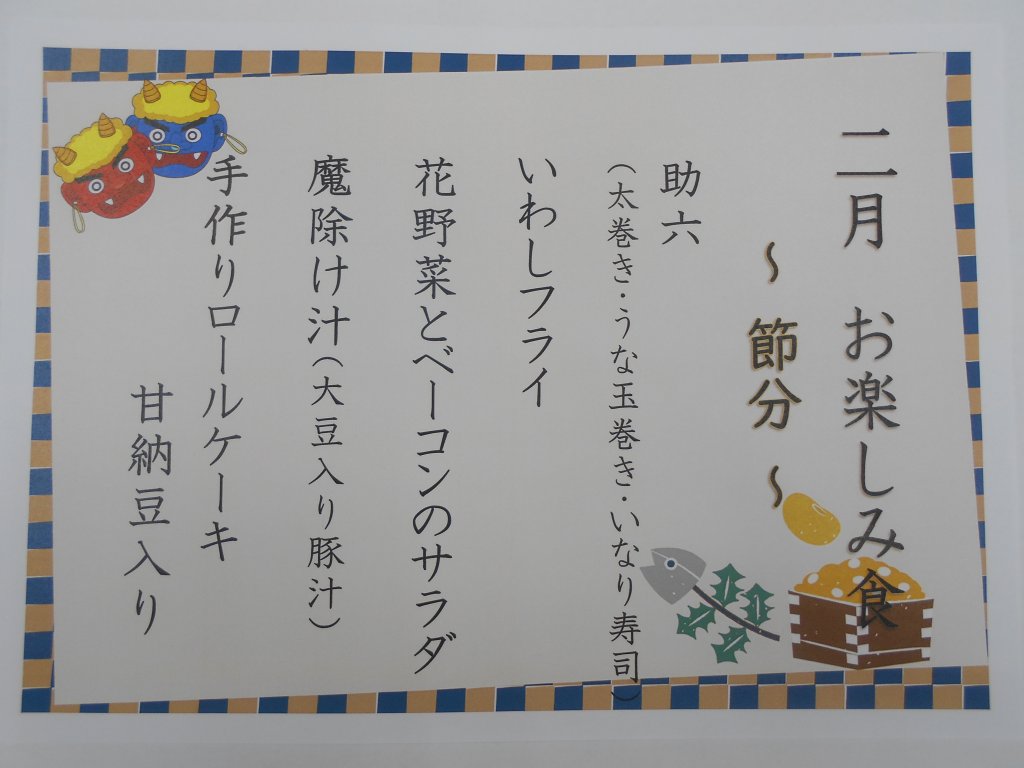 二月 お楽しみ食
～ 節分 ～
助六
（太巻き・うな玉巻き・いなり寿司）
いわしフライ
花野菜とベーコンのサラダ
魔除け汁（大豆入り豚汁）
手作りロールケーキ
甘納豆入り